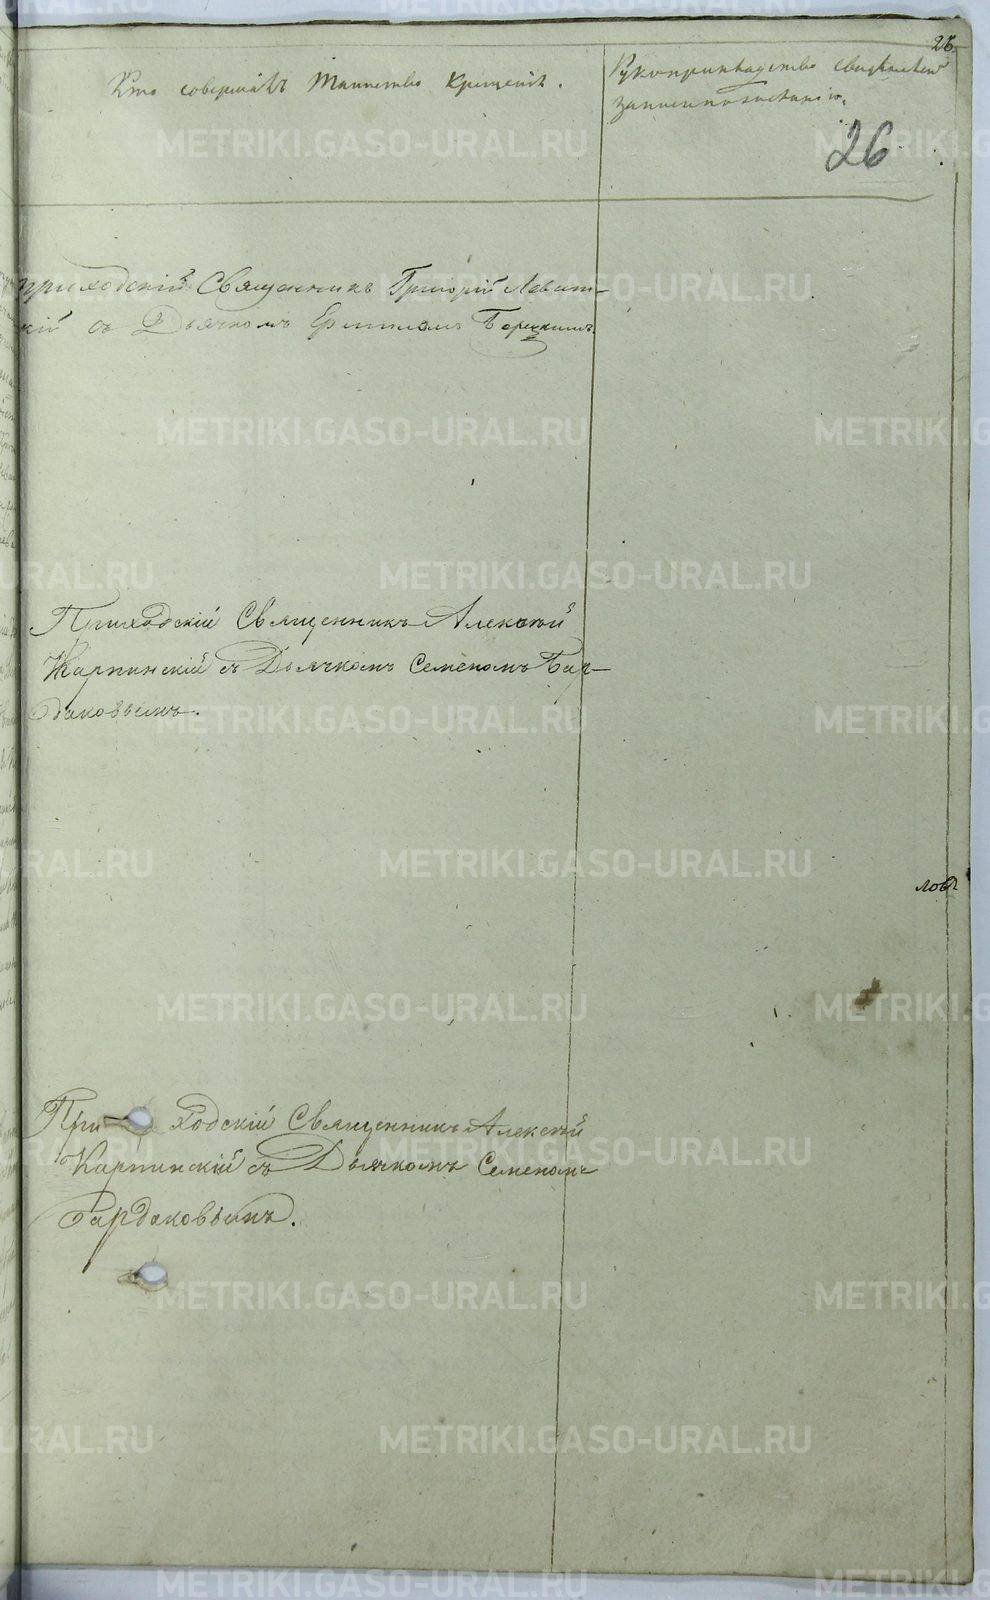 26.
Кто совершалъ Таинство Крещенія.
Рукоприкладство свидѣтелей
записи по желанію.
26
приходскій Священникъ Григорій Левит-
кій съ Дьячкомъ Ермиломъ Борецкимъ
Приходскій Священникъ Алексѣй
Карпинскій съ Дьячкомъ Семеномъ Бар-
даковымъ.
ловъ
При- ходскій Священникъ Алексѣй
Карпинскій съ Дьячкомъ Семеномъ
Бардаковымъ.
METRIKI.GASO-URAL.RU